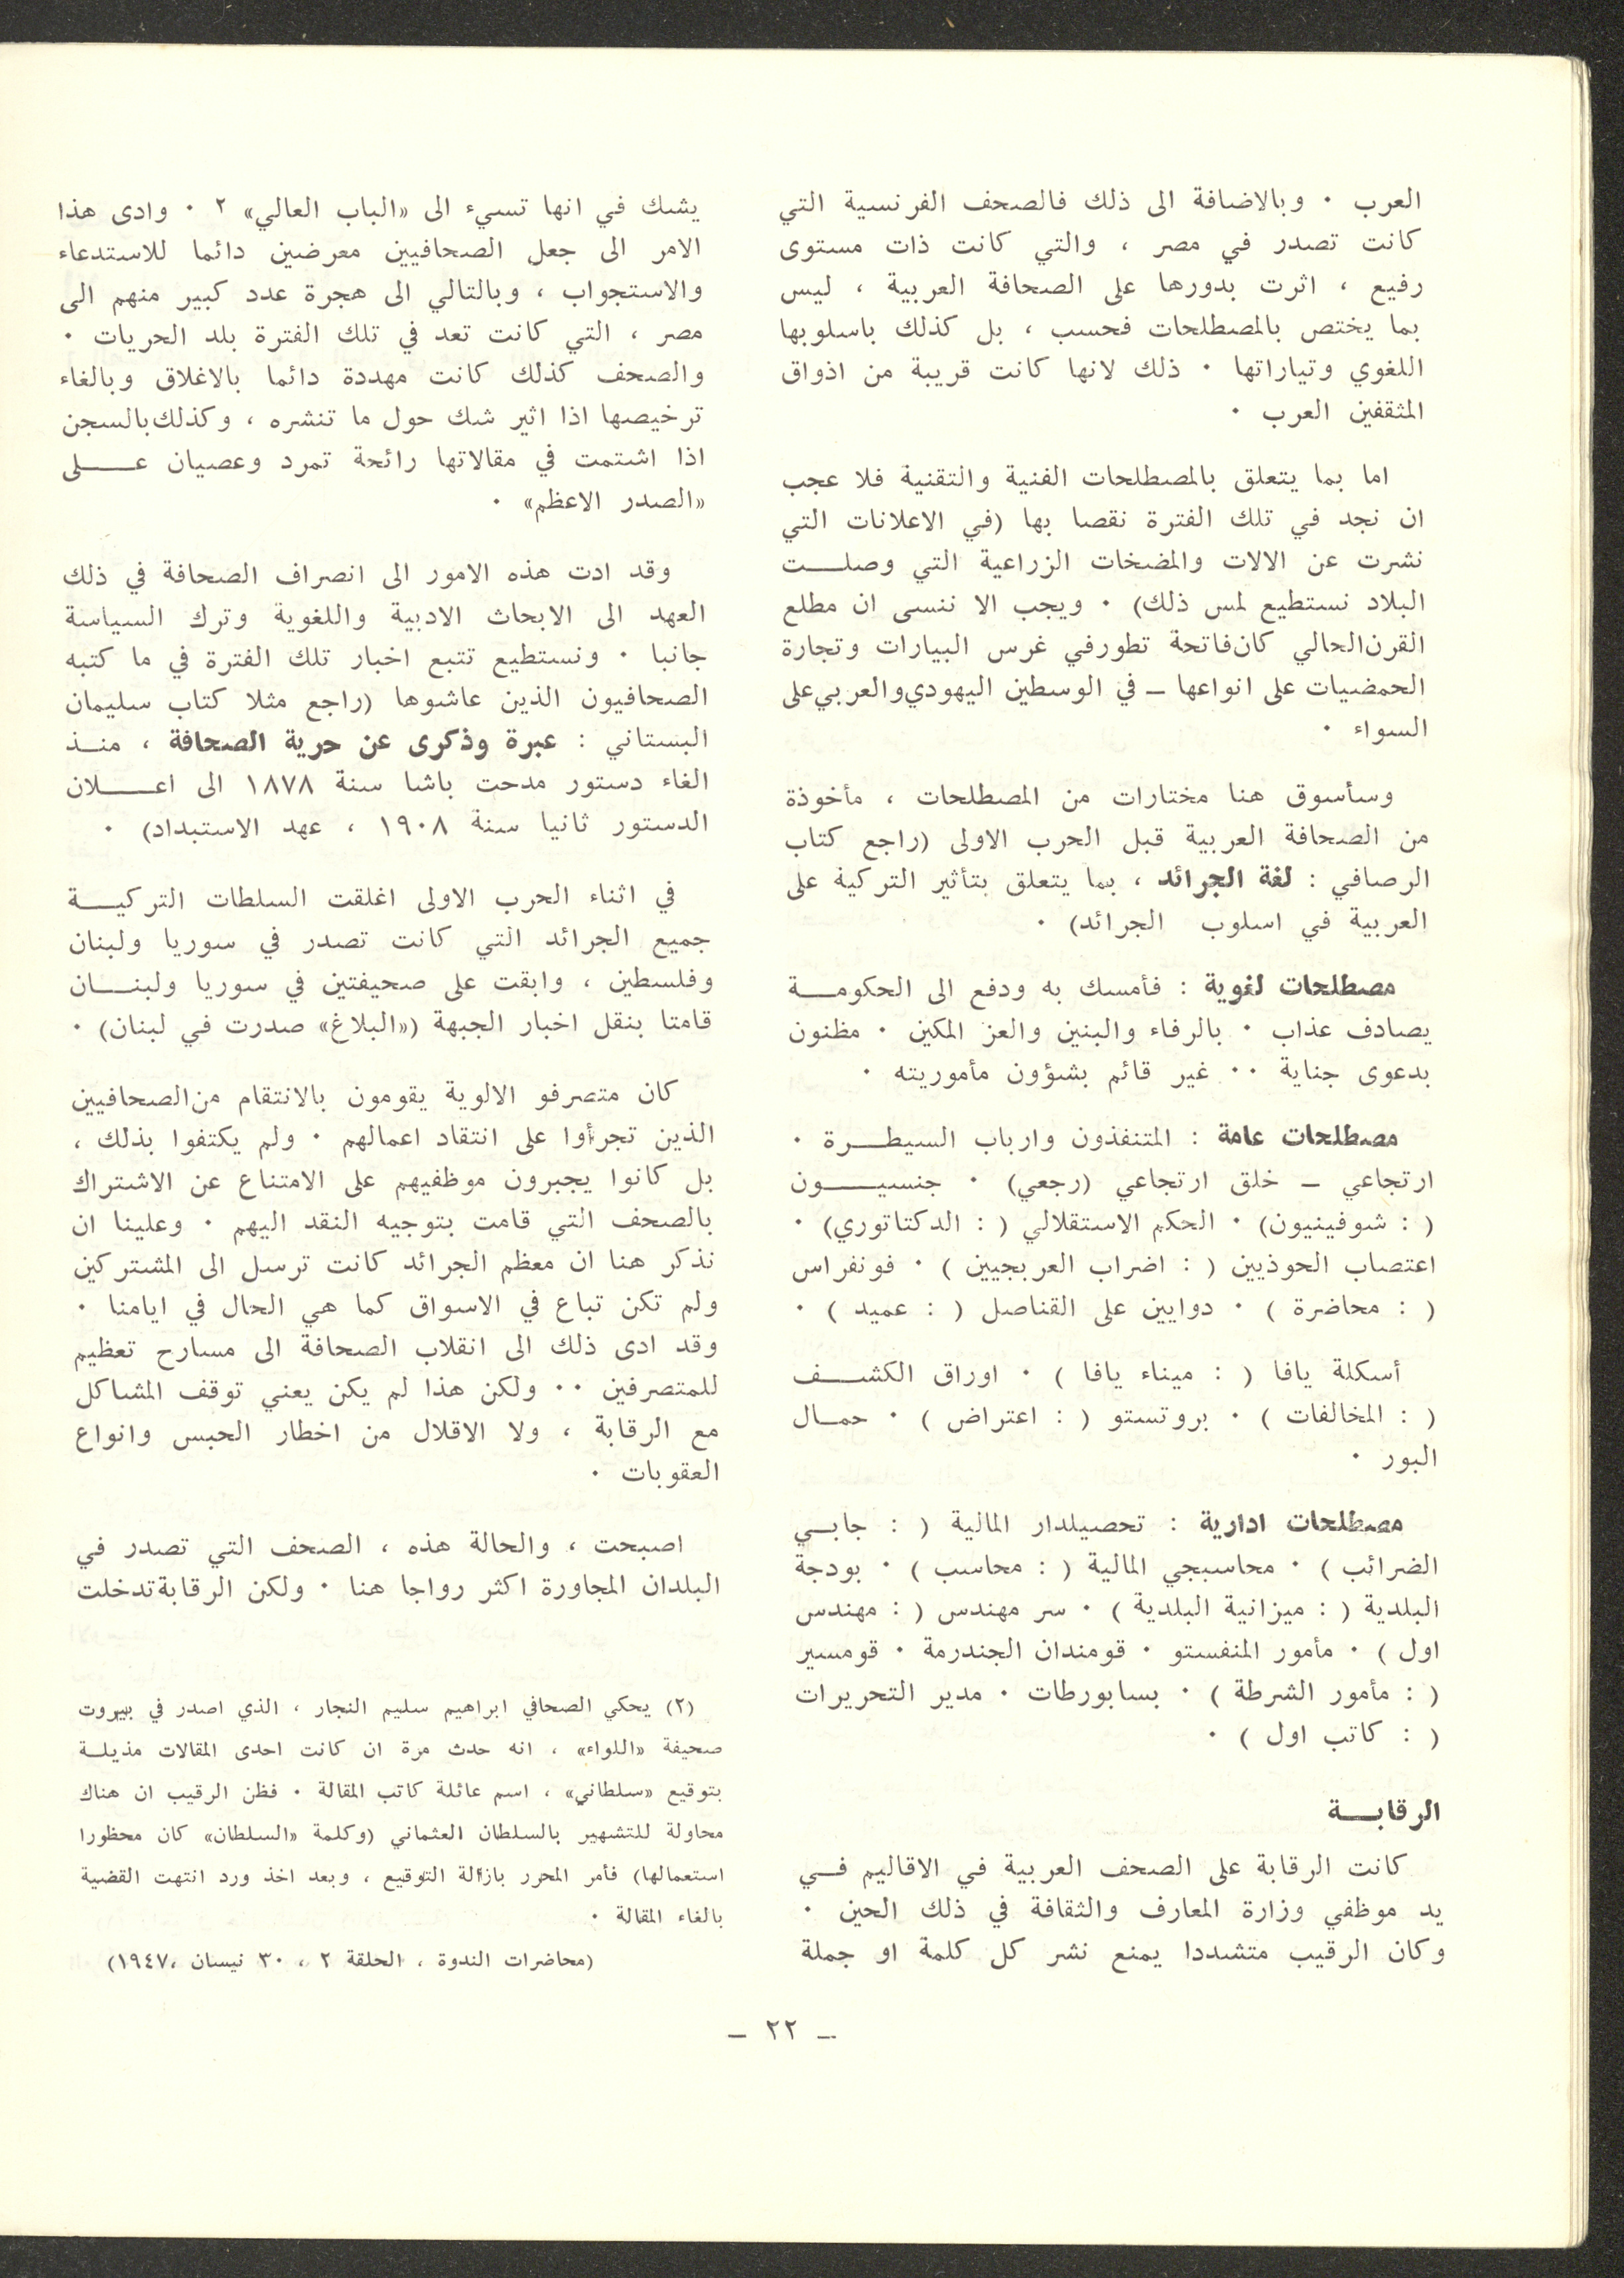 العرب ٠ وبالاضافة الى ذلك فالصحف الفرنسية التي
كانت تصدر في مصر ، والتي كانت ذات مستوى
رفيع ، اثرت بدورها على الصحافة العربية ، ليس
بما يختص بالمصطلحات فحسب ، بل كذلك باسلوبها
اللغوي وتياراتها ٠ ذلك لانها كانت قريبة من اذواق
المثقفين العرب ٠
اما بما يتعلق بالمصطلحات الفنية والتقنية فلا عجب
ان نجد في تلك الفترة نقصا بها (في الاعلانات التي
نشرت عن الالات والمضخات الزراعية التي وصلــت
البلاد نستطيع لمس ذلك) ٠ ويجب الا ننسى ان مطلع
القرن الحالي كان فاتحة تطور في غرس البيارات وتجارة
الحمضيات على انواعها ــ في الوسطين اليهودي والعربي على
السواء ٠
وسأسوق هنا مختارات من المصطلحات ، مأخوذة
من الصحافة العربية قبل الحرب الاولى (راجع كتاب
الرصافي : لغة الجرائد ، بما يتعلق بتأثير التركية على
العربية في اسلوب الجرائد) ٠
مصطلحات لغوية : فأمسك به ودفع الى الحكومــة
يصادف عذاب ٠ بالرفاء والبنين والعز المكين ٠ مظنون
بدعوى جناية ٠٠ غير قائم بشؤون مأموريته ٠
مصطلحات عامة : المتنفذون وارباب السيطــرة ٠
ارتجاعي ــ خلق ارتجاعي (رجعي) ٠ جنسيــون
( : شوفينيون) ٠ الحكم الاستقلالي ( : الدكتاتوري) ٠
اعتصاب الحوذيين ( : اضراب العربجيين ) ٠ فونفراس
( : محاضرة ) ٠ دوايين على القناصل ( : عميد ) ٠
أسكلة يافا ( : ميناء يافا ) ٠ اوراق الكشــف
( : المخالفات ) ٠ بروتستو ( : اعتراض ) ٠ حمــال
البور ٠
مصطلحات ادارية : تحصيلدار المالية ( : جابــي
الضرائب ) ٠ محاسبجي المالية ( : محاسب ) ٠ بودجة
البلدية ( : ميزانية البلدية ) ٠ سر مهندس ( : مهندس
اول ) ٠ مأمور المنفستو ٠ قومندان الجندرمة ٠ قومسير
( : مأمور الشرطة ) ٠ بسابورطات ٠ مدير التحريرات
( : كاتب اول ) ٠
الرقابــة
كانت الرقابة على الصحف العربية في الاقاليم فــي
يد موظفي وزارة المعارف والثقافة في ذلك الحين ٠
وكان الرقيب متشددا يمنع نشر كل كلمة او جملة
يشك في انها تسيء الى «الباب العالي» ٢ ٠ وادى هذا
الامر الى جعل الصحافيين معرضين دائما للاستدعاء
والاستجواب ، وبالتالي الى هجرة عدد كبير منهم الى
مصر ، التي كانت تعد في تلك الفترة بلد الحريات ٠
والصحف كذلك كانت مهددة دائما بالاغلاق وبالغاء
ترخيصها اذا اثير شك حول ما تنشره ، وكذلك بالسجن
اذا اشتمت في مقالاتها رائحة تمرد وعصيان عــلى
«الصدر الاعظم» ٠
وقد ادت هذه الامور الى انصراف الصحافة في ذلك
العهد الى الابحاث الادبية واللغوية وترك السياسة
جانبا ٠ ونستطيع تتبع اخبار تلك الفترة في ما كتبه
الصحافيون الذين عاشوها (راجع مثلا كتاب سليمان
البستاني : عبرة وذكرى عن حرية الصحافة ، منــذ
الغاء دستور مدحت باشا سنة ١٨٧٨ الى اعــلان
الدستور ثانيا سنة ١٩٠٨ ، عهد الاستبداد) ٠
في اثناء الحرب الاولى اغلقت السلطات التركيــة
جميع الجرائد التي كانت تصدر في سوريا ولبنان
وفلسطين ، وابقت على صحيفتين في سوريا ولبنــان
قامتا بنقل اخبار الجبهة («البلاغ» صدرت في لبنان) ٠
كان متصرفو الالوية يقومون بالانتقام من الصحافيين
الذين تجرأوا على انتقاد اعمالهم ٠ ولم يكتفوا بذلك ،
بل كانوا يجبرون موظفيهم على الامتناع عن الاشتراك
بالصحف التي قامت بتوجيه النقد اليهم ٠ وعلينا ان
نذكر هنا ان معظم الجرائد كانت ترسل الى المشتركين
ولم تكن تباع في الاسواق كما هي الحال في ايامنا ٠
وقد ادى ذلك الى انقلاب الصحافة الى مسارح تعظيم
للمتصرفين ٠٠ ولكن هذا لم يكن يعني توقف المشاكل
مع الرقابة ، ولا الاقلال من اخطار الحبس وانواع
العقوبات ٠
اصبحت ، والحالة هذه ، الصحف التي تصدر في
البلدان المجاورة اكثر رواجا هنا ٠ ولكن الرقابة تدخلت
(٢) يحكي الصحافي ابراهيم سليم النجار ، الذي اصدر في بيروت
صحيفة «اللواء» ، انه حدث مرة ان كانت احدى المقالات مذيلــة
بتوقيع «سلطاني» ، اسم عائلة كاتب المقالة ٠ فظن الرقيب ان هناك
محاولة للتشهير بالسلطان العثماني (وكلمة «السلطان» كان محظورا
استعمالها) فأمر المحرر بازالة التوقيع ، وبعد اخذ ورد انتهت القضية
بالغاء المقالة ٠
(محاضرات الندوة ، الحلقة ٢ ، ٣٠ نيسان ،١٩٤٧)
ــ ٢٢ ــ